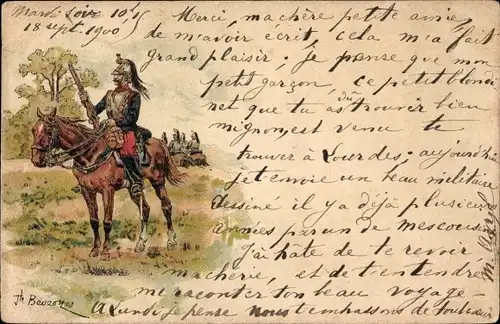 Mardi soir 10h 15
18 sept. 1900
Merci, ma chère petite amie,
de m'avoir écrit, cela m'a fait
grand plaisir; je pense que mon
petit garçon, ce petit blondi
net que tu as dû trouver bien
mignon, est venu te
trouver à Lourdes; aujourd'hui
je t'envoie un beau militaire
dessiné il y a déjà plusieurs
années par un de mes cousins
J'ai hâte de te revoir
ma chérie, et de t'entendre
me raconter ton beau voyage-
A Lundi je pense Nous t'embrassons de tout cœur
Th. Beuzon